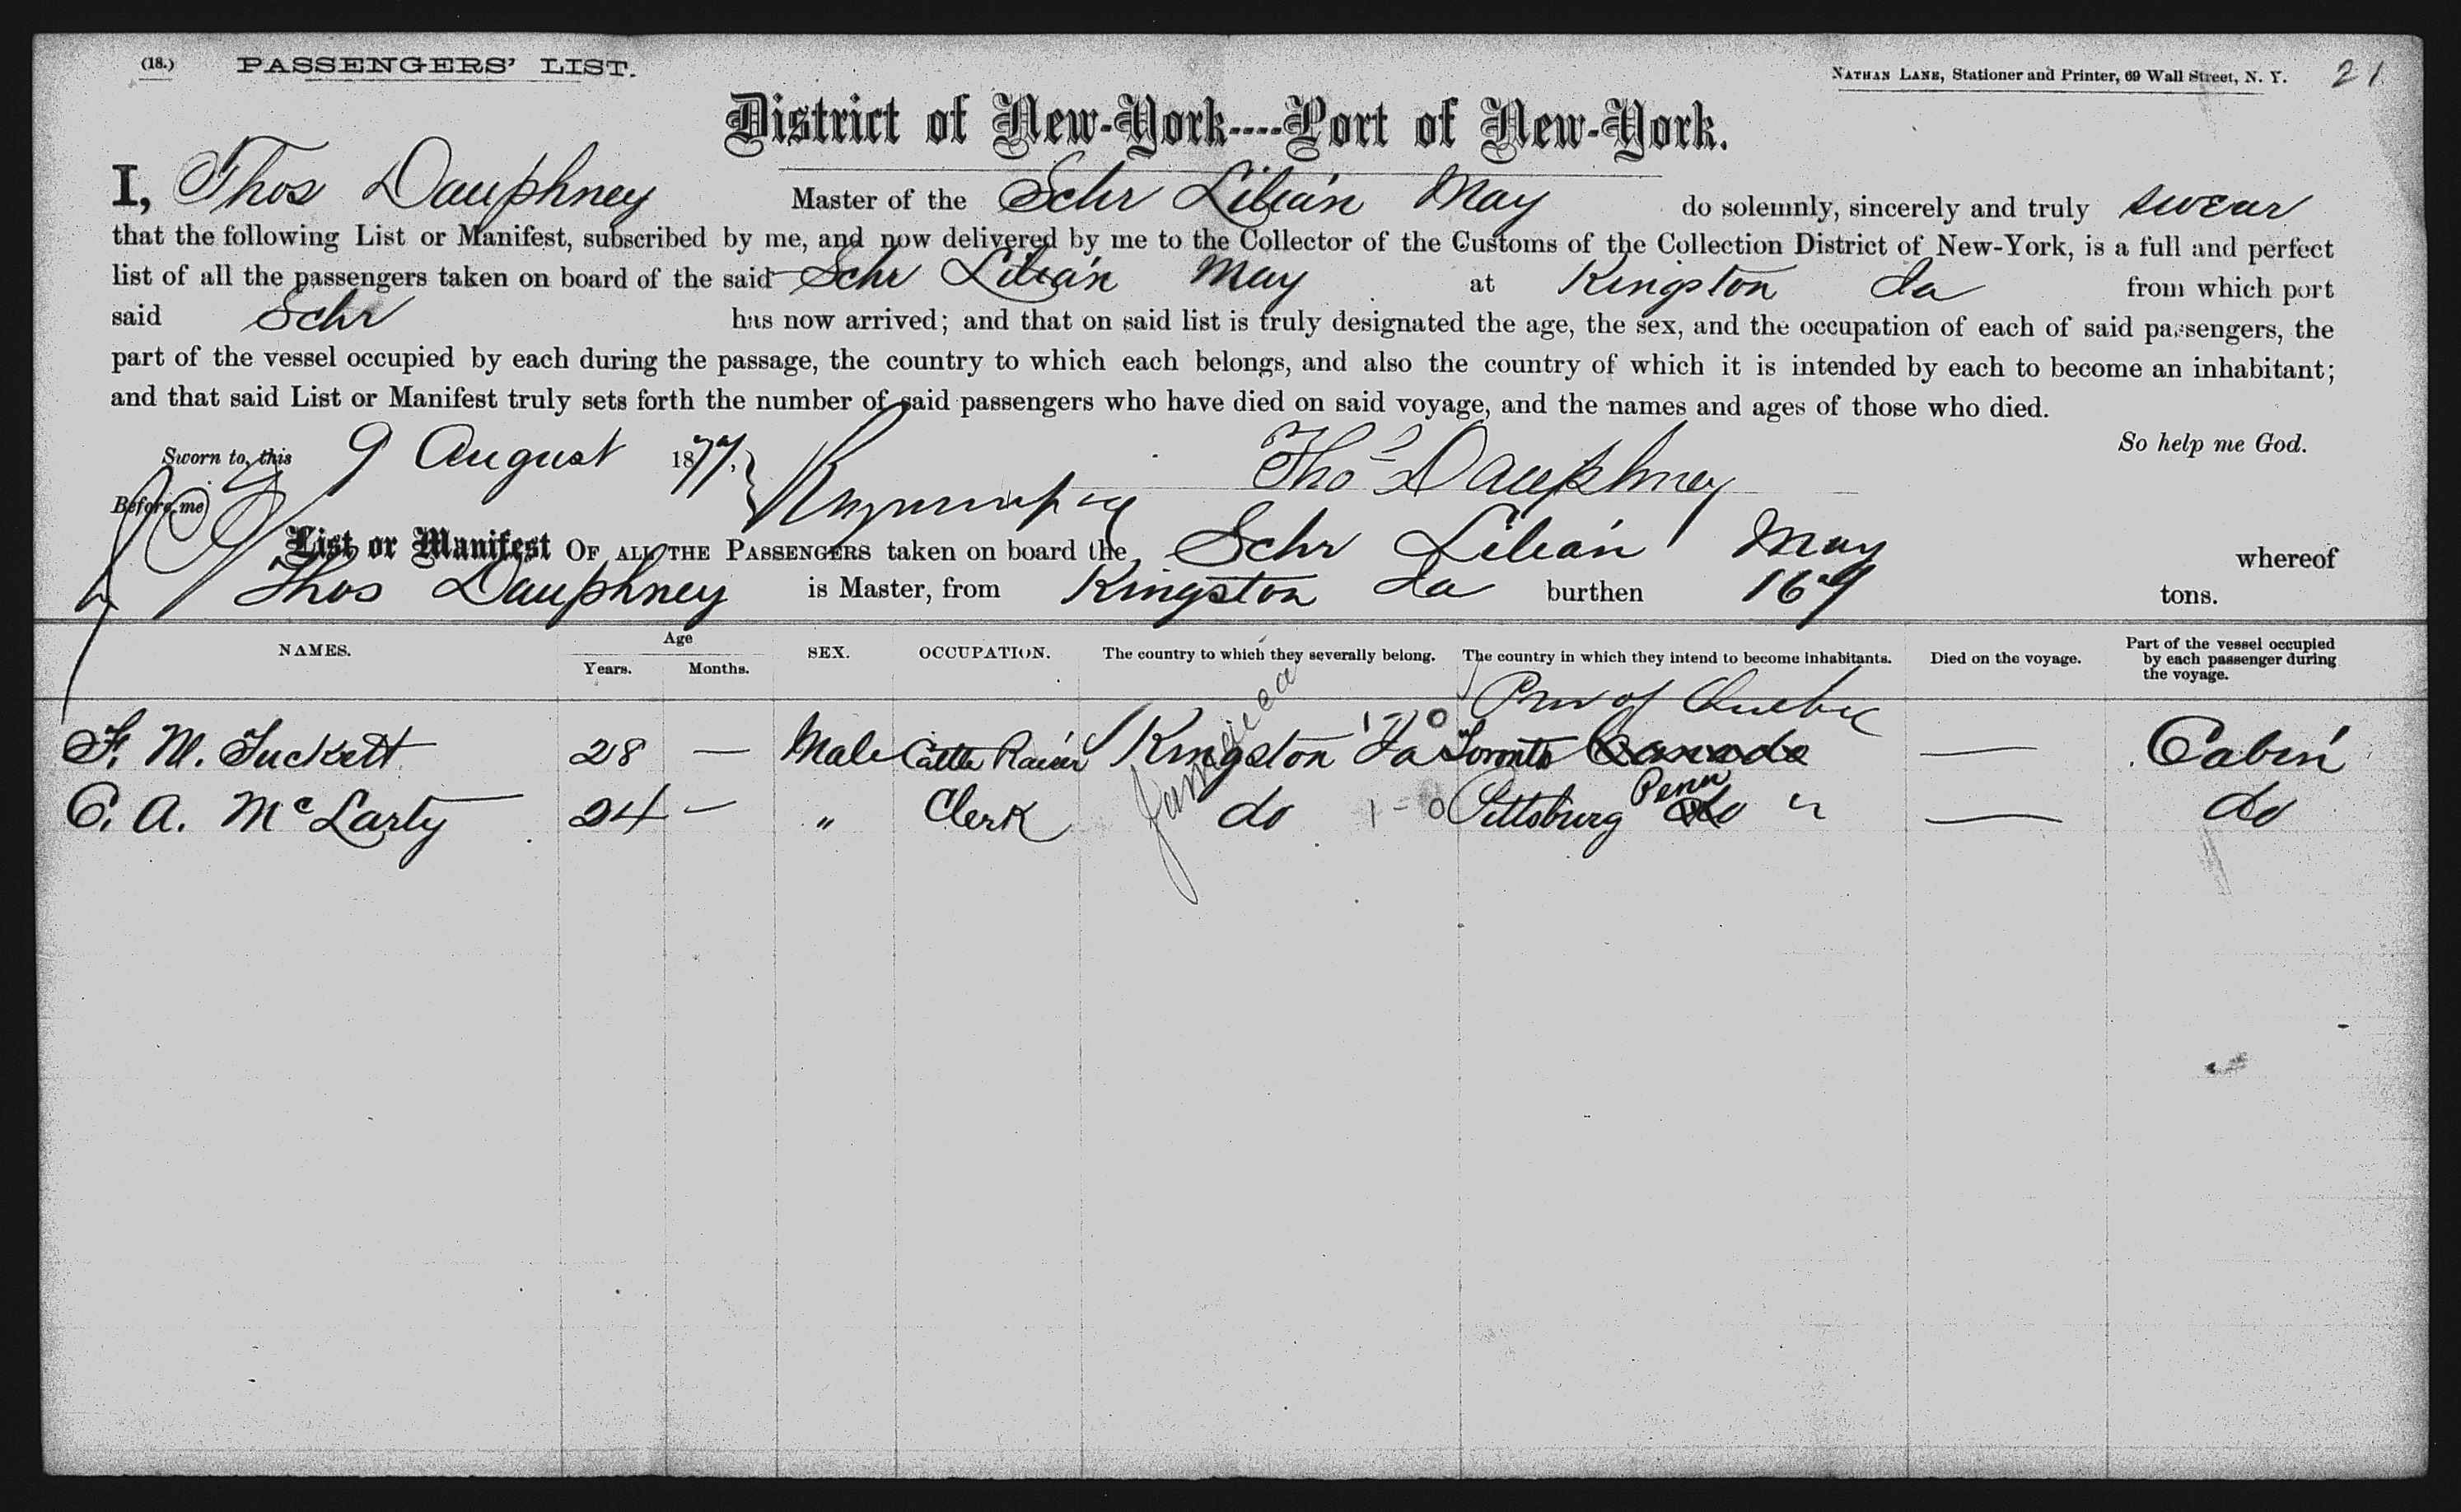 (18.) PASSENGERS' LIST. NATHAN LANE, Stationer and Printer, 69 Wall Street, N. Y. 21
District of New-York----Port of New-York.
I, Thos Dauphney Master of the Schr Lilian May do solemnly, sincerely and truly swear
that the following List or Manifest, subscribed by me, and now delivered by me to the Collector of the Customs of the Collection District of New-York, is a full and perfect
list of all the passengers taken on board of the said Schr Lilian May at Kingston Ja from which port
said Schr has now arrived; and that on said list is truly designated the age, the sex, and the occupation of each of said passengers, the
part of the vessel occupied by each during the passage, the country to which each belongs, and also the country of which it is intended by each to become an inhabitant;
and that said List or Manifest truly sets forth the number of said passengers who have died on said voyage, and the names and ages of those who died.
So help me God.
Sworn to, this 9 August 1877. Thos Dauphney
Before me
List or Manifest OF ALL THE PASSENGERS taken on board the Schr Lilian May whereof
Thos Dauphney is Master, from Kingston Ja burthen 169 tons.
NAMES. Age Years. Months. SEX. OCCUPATION. The country to which they severally belong. The country in which they intend to become inhabitants. Died on the voyage. Part of the vessel occupied by each passenger during the voyage.
Prov of Quebec
F. M. Tuckett 28 — Male Cattle Raiser Kingston Ja 1-0 Toronto Canada — Cabin
Jamaica
Penn
C. A. McLarty 24 — " Clerk do 1-0 Pittsburg do " — do